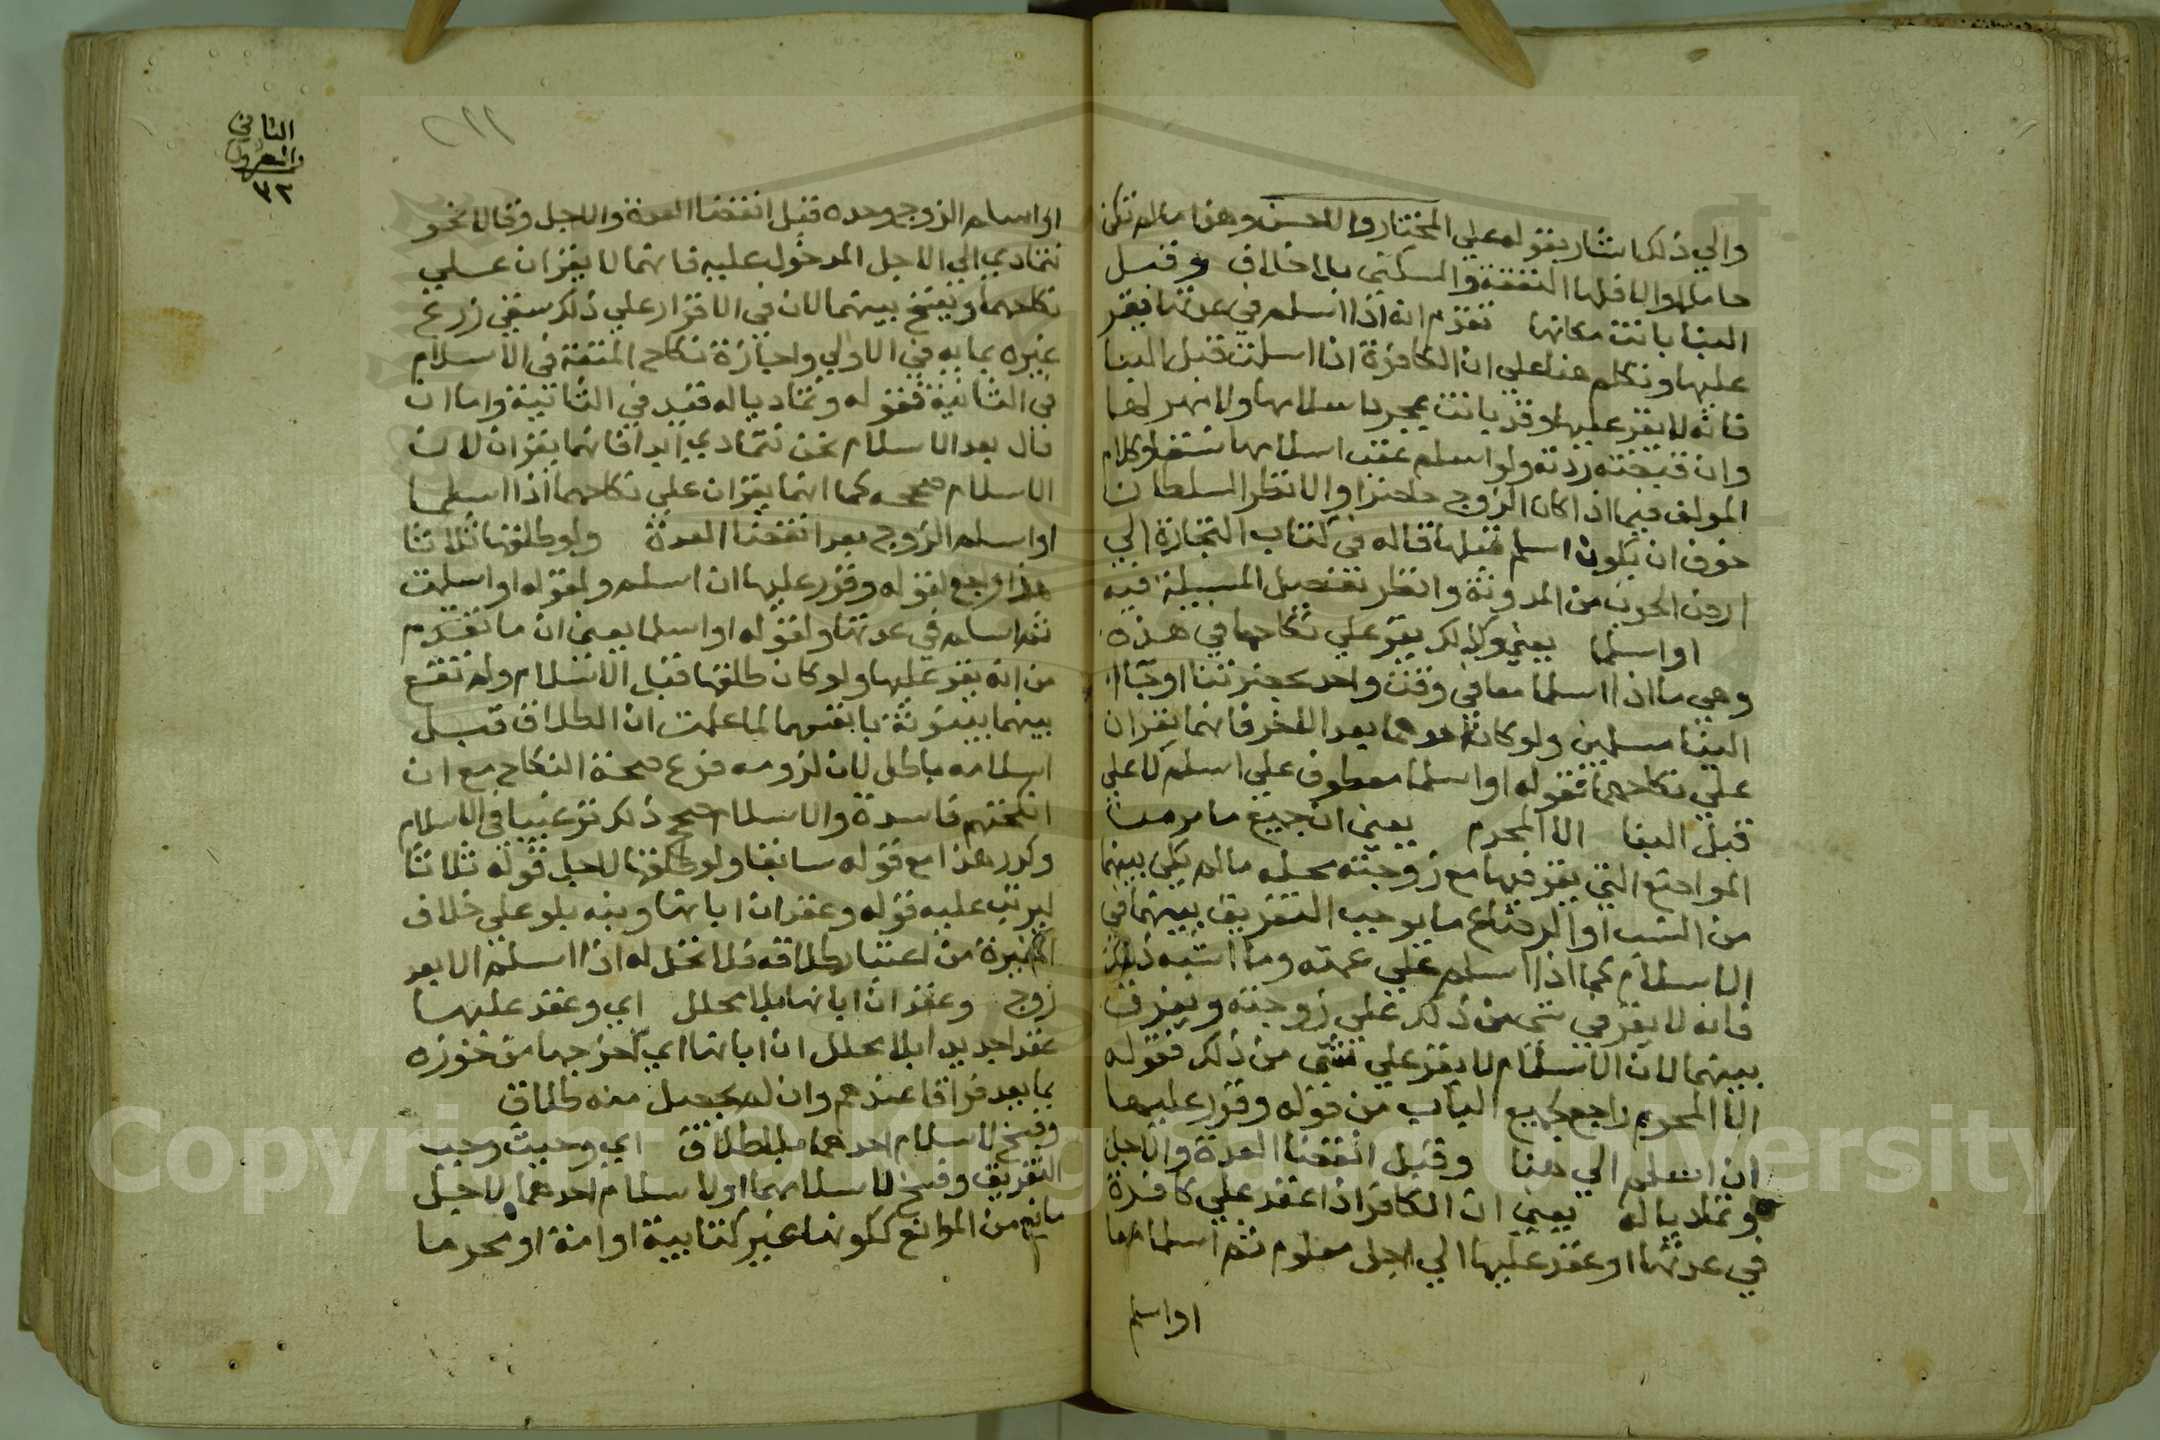 والي ذلك اشار بقوله علي المختار والاحسن وهذا مالم تكن
حاملا والا فلها النفقة والسكنى بلا خلاف وقبل
البنا بانت مكانها تقدم انه اذا اسلم في عدتها يقر
عليها وتكلم هنا علي ان الكافرة اذا اسلمت قبل البنا
فانه لا يقر عليها وقد بانت بمجرد اسلامها ولا مهر لها
وان قبضته ردته ولو اسلم عقب اسلامها نسقا وكلام
المولف فيما اذا كان الزوج حاضرا والا نظر السلطان
خوف ان يكون اسلم قبلها قاله في كتاب التجارة الي
ارض الحرب من المدونة وانظر تفصيل المسيلة فيه
او اسلما يعني وكذلك يقر علي نكاحها في هذه
وهي ما اذا اسلما معا في وقت واحد بحضرتنا او جآا
الينا مسلمين ولو كان احدهما بعد الاخر فانهما يقران
علي نكاحهما فقوله او اسلما معطوف علي اسلم لا علي
قبل البنا الا المحرم يعني ان جميع ما مر من
المواضع التي يقر فيها مع زوجته محله ما لم يكن بينهما
من النسب او الرضاع ما يوجب التفريق بينهما في
الاسلام كما اذا اسلم علي عمته وما اشبه ذلك
فانه لا يقر في شي من ذلك علي زوجته ويفرق
بينهما لان الاسلام لا يقر علي شي من ذلك فقوله
الا المحرم راجع لجميع الباب من قوله وقرر عليها
ان اسلم الي هنا وقبل انقضا العدة والاجل
وتماديا له يعني ان الكافر اذا عقد علي كافرة
في عدتها او عقد عليها الي اجل معلوم ثم اسلما معا
او اسلم
الثاني
والعشرون
٣٢
٢١١
او اسلم الزوج وحده قبل انقضا العدة والاجل وقالا نحن
نتمادي الي الاجل المدخول عليه فانهما لا يقران علي
نكاحهما ويفسخ بينهما لان في الاقرار علي ذلك سقي زرع
غيره بمايه في الاولي واجازة نكاح المتعة في الاسلام
في الثانية فقوله وتماديا له قيد في الثانية واما ان
قال بعد الاسلام نحن نتمادي ابدا فانهما يقران لان
الاسلام صححه كما انهما يقران علي نكاحهما اذا اسلما
او اسلم الزوج بعد انقضا العدة ولو طلقها ثلاثا
هذا راجع لقوله وقرر عليها ان اسلم ولقوله او اسلمت
ثم اسلم في عدتها ولقوله او اسلما يعني ان ما تقدم
من انه يقر عليها ولو كان طلقها قبل الاسلام ولم تقع
بينهما بينونة بانفسهما لما علمت ان الطلاق قبل
اسلامه باطل لان لزومه فرع صحة النكاح مع ان
انكحتهم فاسدة والاسلام صحح ذلك ترغيبا في الاسلام
وكرر هذا مع قوله سابقا ولو طلقها لاجل قوله ثلاثا
ليرتب عليه قوله وعقد ان ابانها وبنه بلو علي خلاف
المغيرة من اعتبار طلاقه فلا تحل له اذا اسلم الا بعد
زوج وعقد ان ابانها بلا محلل اي وعقد عليها
عقدا جديدا بلا محلل ان ابانها اي اخرجها من حوزه
بما يعد فراقا عندهم وان لم يحصل منه طلاق
وفسخ لاسلام احدهما بلا طلاق اي وحيث وجب
التفريق وفسخ لاسلامهما او لاسلام احدهما لاجل
مانع من الموانع ككونها غير كتابية او امة او محرما
Copyright © King Saud University